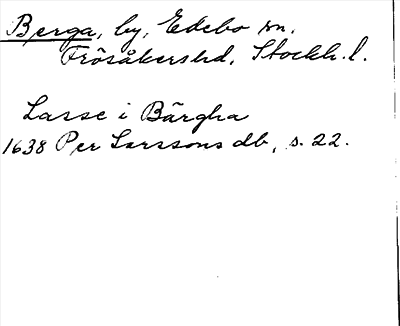 Berga, by, Edebo sn.
Frösåkers hd, Stockh. l.
Lasse i Bärgha
1638 Per Larssons db, s. 22.